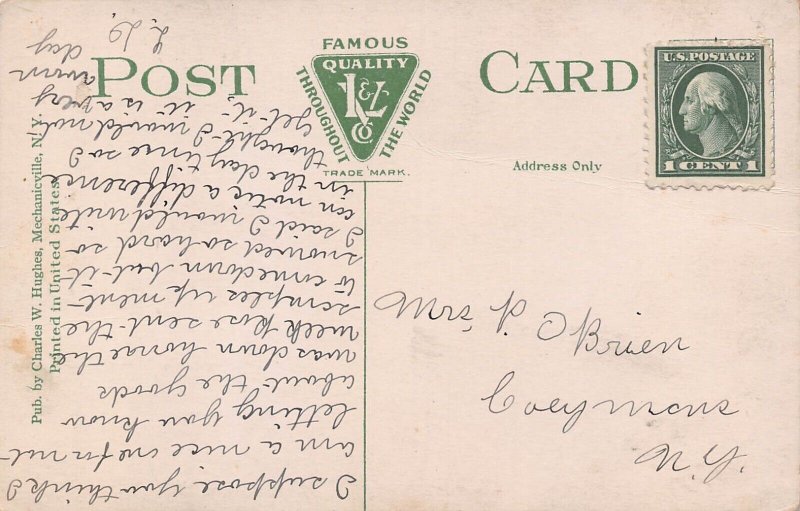 POST CARD
FAMOUS
QUALITY
L & Z
Co
THROUGHOUT
THE WORLD
TRADE MARK.
U.S. POSTAGE
1 CENT 1
Address Only
Pub. by Charles W. Hughes, Mechanicville, N. Y.
Printed in United States
Mrs P. O Brien
Coeymans
N.Y.
I suppose you think I
am a nice one for not
letting you know
about the goods
was down home the
week Rose sent the
samples up ment
to come down but it
snowed so hard so
I said I would write
can notice a difference
in the day time so I
thought I would not
get it, it is a very
warm
day
L. D.